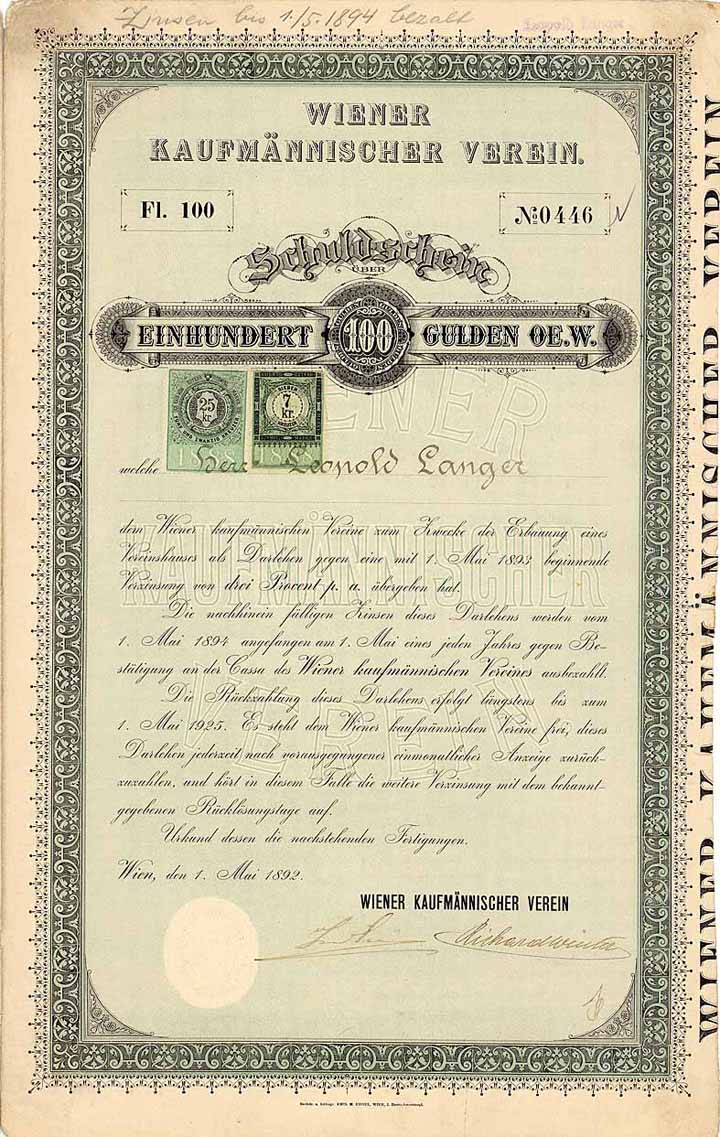 Zinsen bis 1./5. 1894 bezalt
Leopold Langer
WIENER
KAUFMÄNNISCHER VEREIN.
Fl. 100
No 0446
Schuldschein
ÜBER
EINHUNDERT 100 GULDEN OE.W.
25 kr.
SIEBEN
7 kr.
1888
1888
welche Herr Leopold Langer
dem Wiener kaufmännischen Vereine zum Zwecke der Erbauung eines
Vereinshauses als Darlehen gegen eine mit 1. Mai 1893 beginnende
Verzinsung von drei Procent p. a. übergeben hat.
Die nachhinein fälligen Zinsen dieses Darlehens werden vom
1. Mai 1894 angefangen am 1. Mai eines jeden Jahres gegen Be-
stätigung an der Cassa des Wiener kaufmännischen Vereines ausbezahlt.
Die Rückzahlung dieses Darlehens erfolgt längstens bis zum
1. Mai 1925. Es steht dem Wiener kaufmännischen Vereine frei, dieses
Darlehen jederzeit nach vorausgegangener einmonatlicher Anzeige zurück-
zuzahlen, und hört in diesem Falle die weitere Verzinsung mit dem bekannt-
gegebenen Rücklösungstage auf.
Urkund dessen die nachstehenden Fertigungen.
Wien, den 1. Mai 1892.
WIENER KAUFMÄNNISCHER VEREIN
Richard Winter
WIENER KAUFMÄNNISCHER VEREIN
WIENER
KAUFMÄNNISCHER
VEREIN